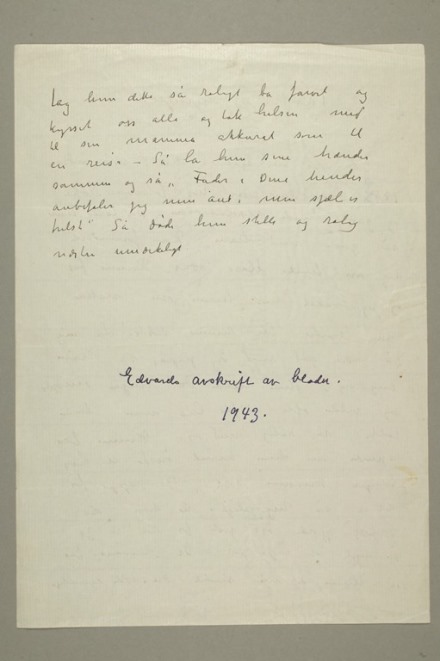 hun dette så roligt ba farvel og
kysset oss alle og tok hilsen med
til sin mamma akkurat som til
en reise – Så la hun sine hænder
sammen og så „Fader i Dine hender
anbefaler jeg min ånd, min sjæl er
frelst" Så døde hun stille og rolig
næsten umærkeligt
Edvards avskrift av blader.
1943.